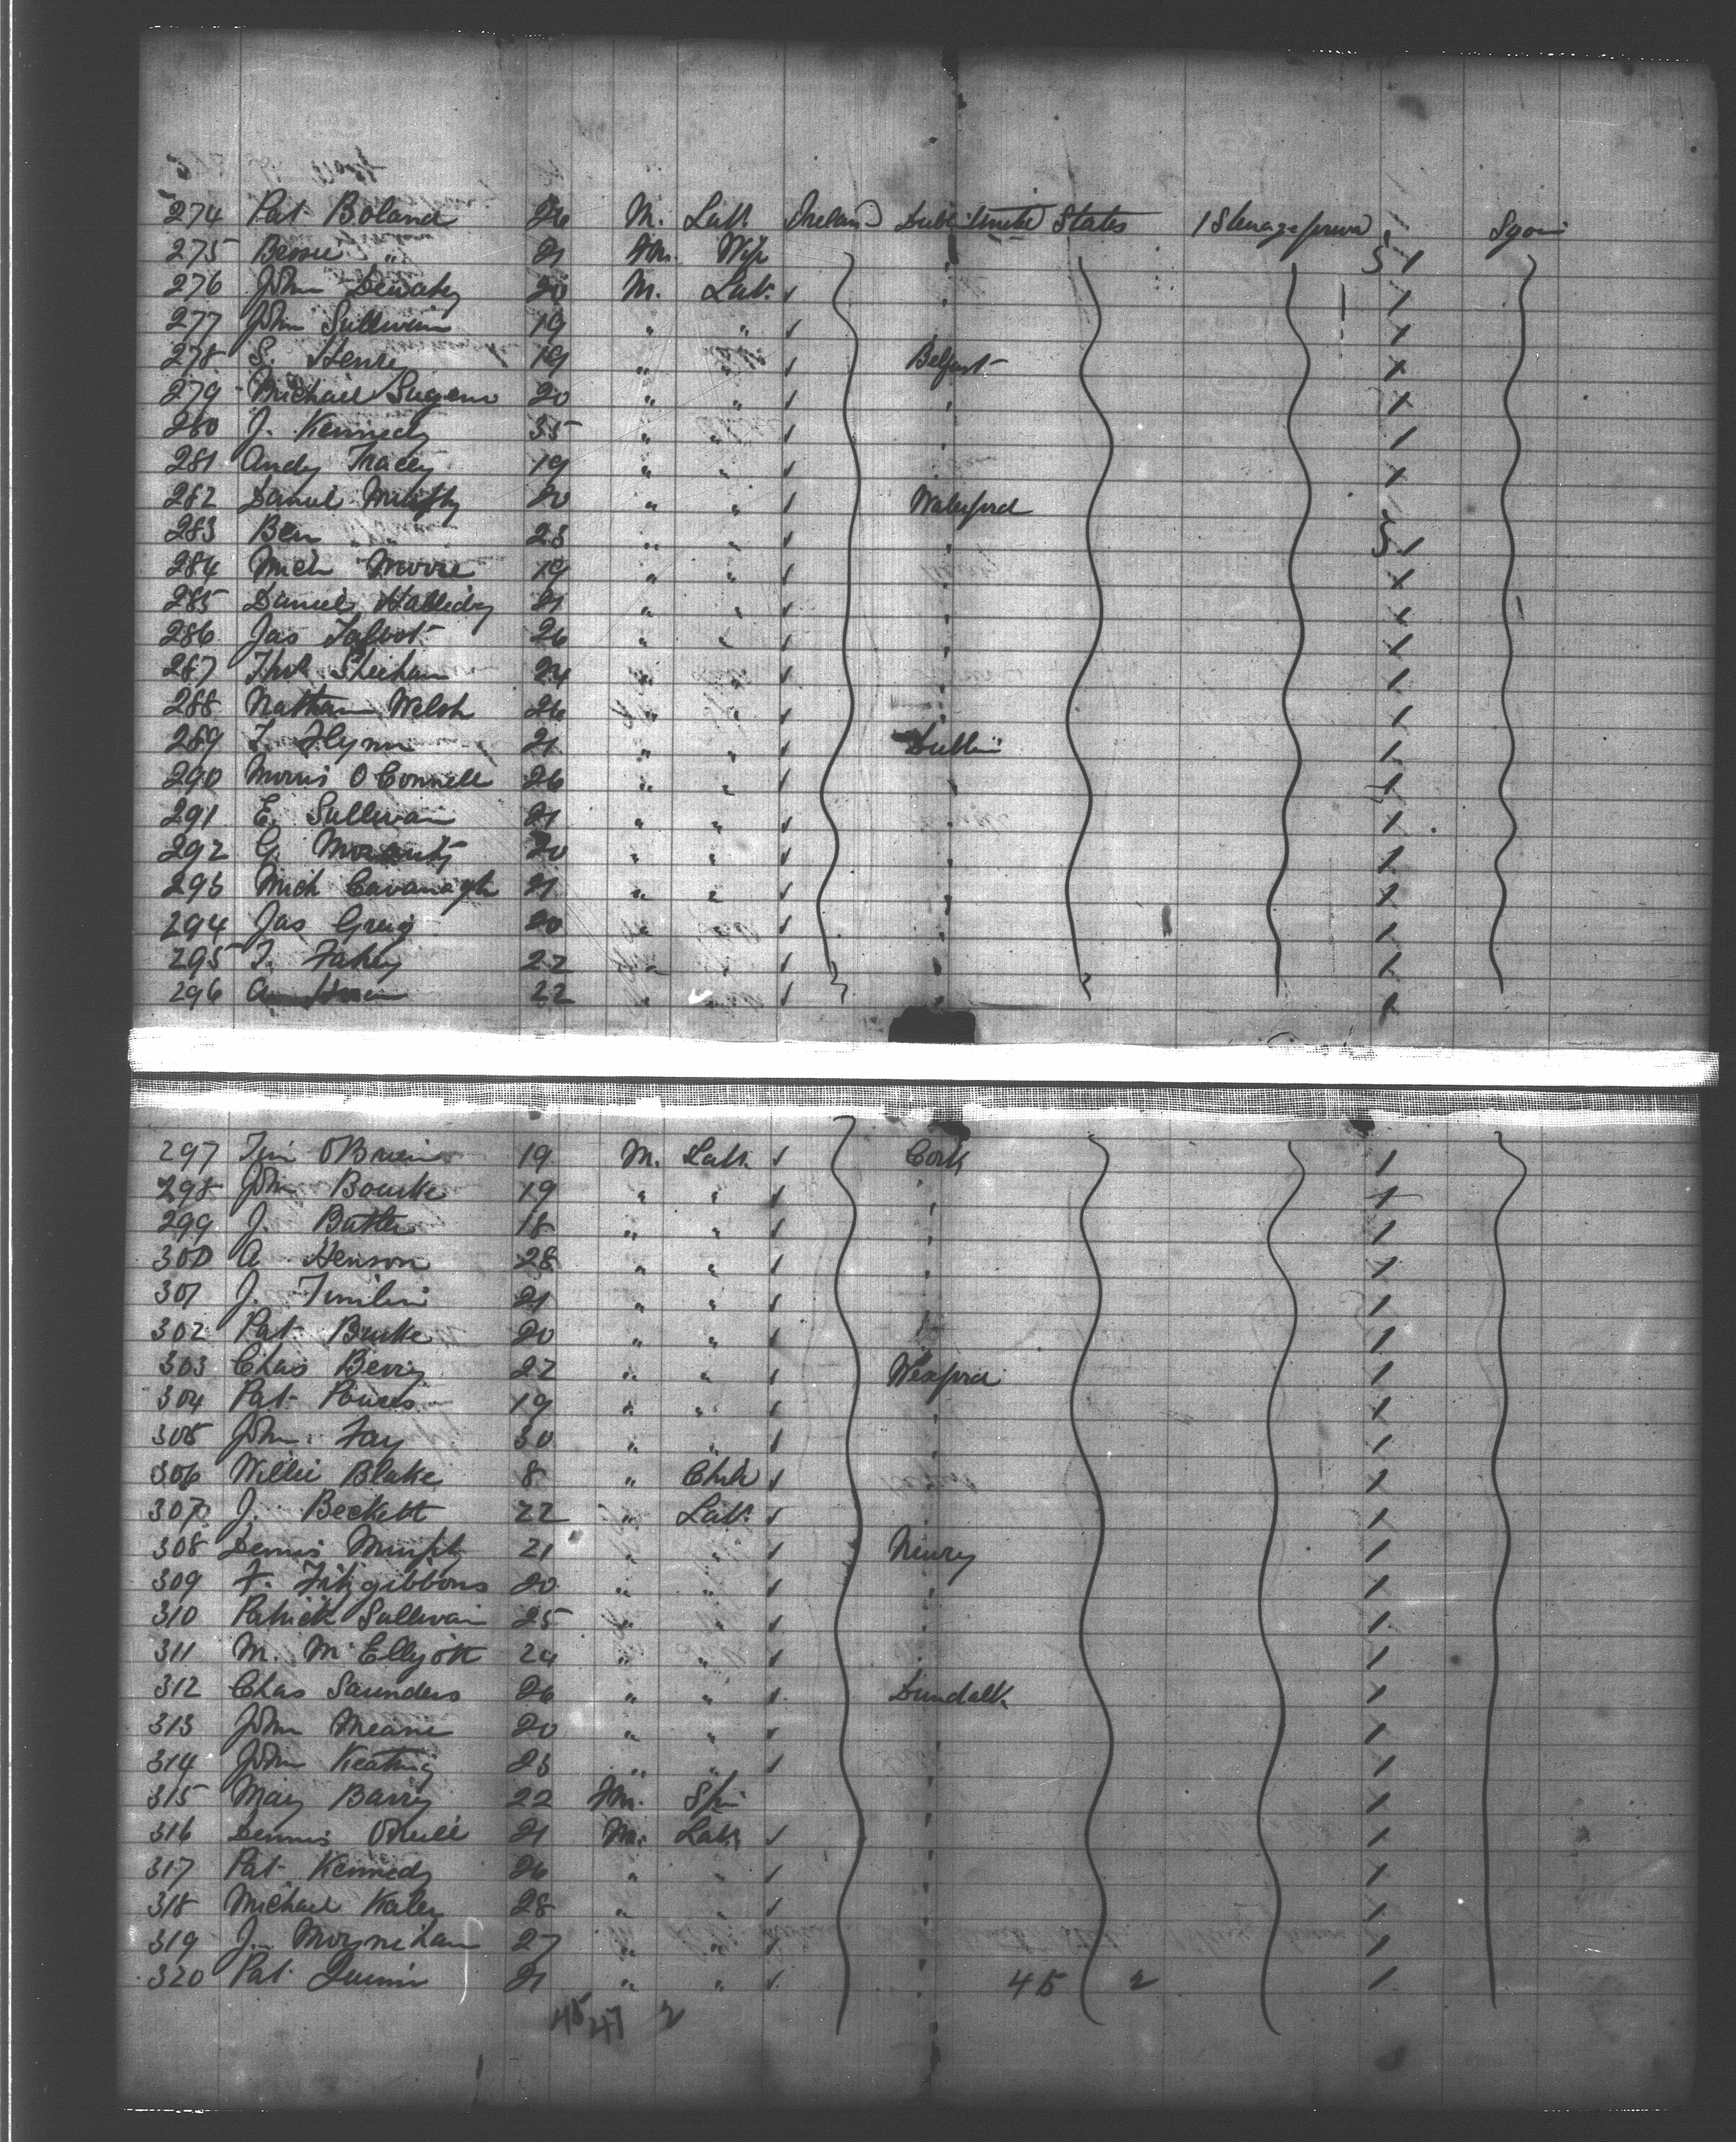 274 Pat Boland 26 M. Lab. Ireland Dublin United States 1 Steerage forwd
275 Bessie " 21 Fm. Wife
276 John 20 M. Lab.
277 John Sullivan 19 " "
278 S. Henry 19 " " Belfast
279 Michael 20 " "
280 J. Kennedy 35 " "
281 Andy Tracey 19 " "
282 Daniel Murphy 20 " " Waterford
283 Ben " 23 " "
284 Mich Moore 19 " "
285 Daniel Halliday 21 " "
286 Jas Talbot 26 " "
287 Thos Sheehan 24 " "
288 Nathan Welsh 26 " "
289 T. Flynn 21 " " Dublin
290 Morris O'Connell 26 " "
291 E. Sullivan 21 " "
292 G. 20 " "
293 Mich Cavanagh 21 " "
294 Jas Greig 20 " "
295 T. Fahey 22 " "
296 22 " "
297 Tim OBrien 19 M. Lab. Cork
298 John Bourke 19 " "
299 J. Butler 18 " "
300 A Henson 28 " "
301 J. Timlin 21 " "
302 Pat Burke 20 " "
303 Chas Berry 22 " " Wexford
304 Pat Powers 19 " "
305 John Fay 30 " "
306 Willie Blake 8 " Child
307 J. Beckett 22 " Lab.
308 Dennis Murphy 21 " " Newry
309 F. Fitzgibbons 20 " "
310 Patrick Sullivan 25 " "
311 M. McEllyott 24 " "
312 Chas Saunders 26 " " Dundalk
313 John Meane 20 " "
314 John Keating 23 " "
315 Mary Barry 22 Fm. Spin
316 Dennis ONeill 21 M. Lab.
317 Pat Kennedy 26 " "
318 Michael Kaley 28 " "
319 J. Moynihan 27 " "
320 Pat Quinn 21 " " 45 2
45 47 2